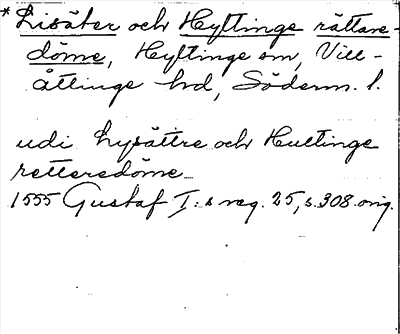 *Lisäter och Hyltinge rättare-
döme, Hyltinge sn, Vill-
åttinge hd, Söderm. l.
udi Lysättre och Hultinge
rettersdöme
1555 Gustaf I:s reg. 25, s. 308. orig.